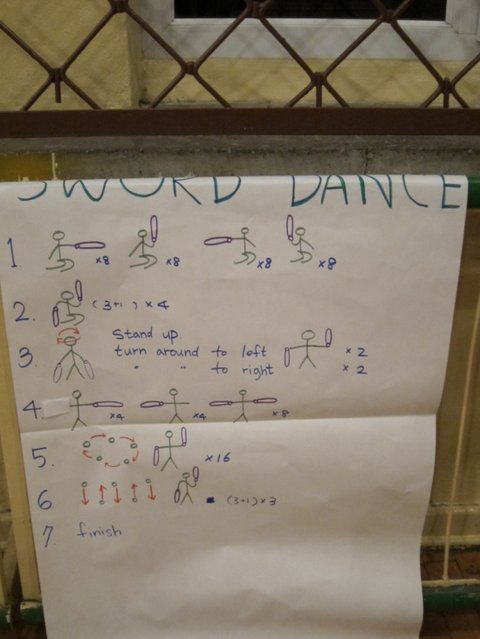 SWORD DANCE
1. ×8 ×8 ×8 ×8
2. (3+1) ×4
3. Stand up.
turn around to left ×2
" " to right ×2
4. ×4 ×4 ×8
5. ×16
6. (3+1)×3
7. finish